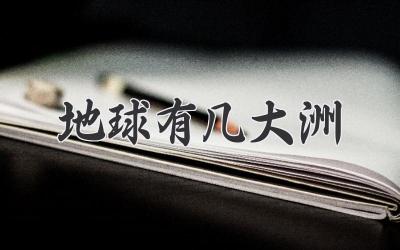 地球有几大洲